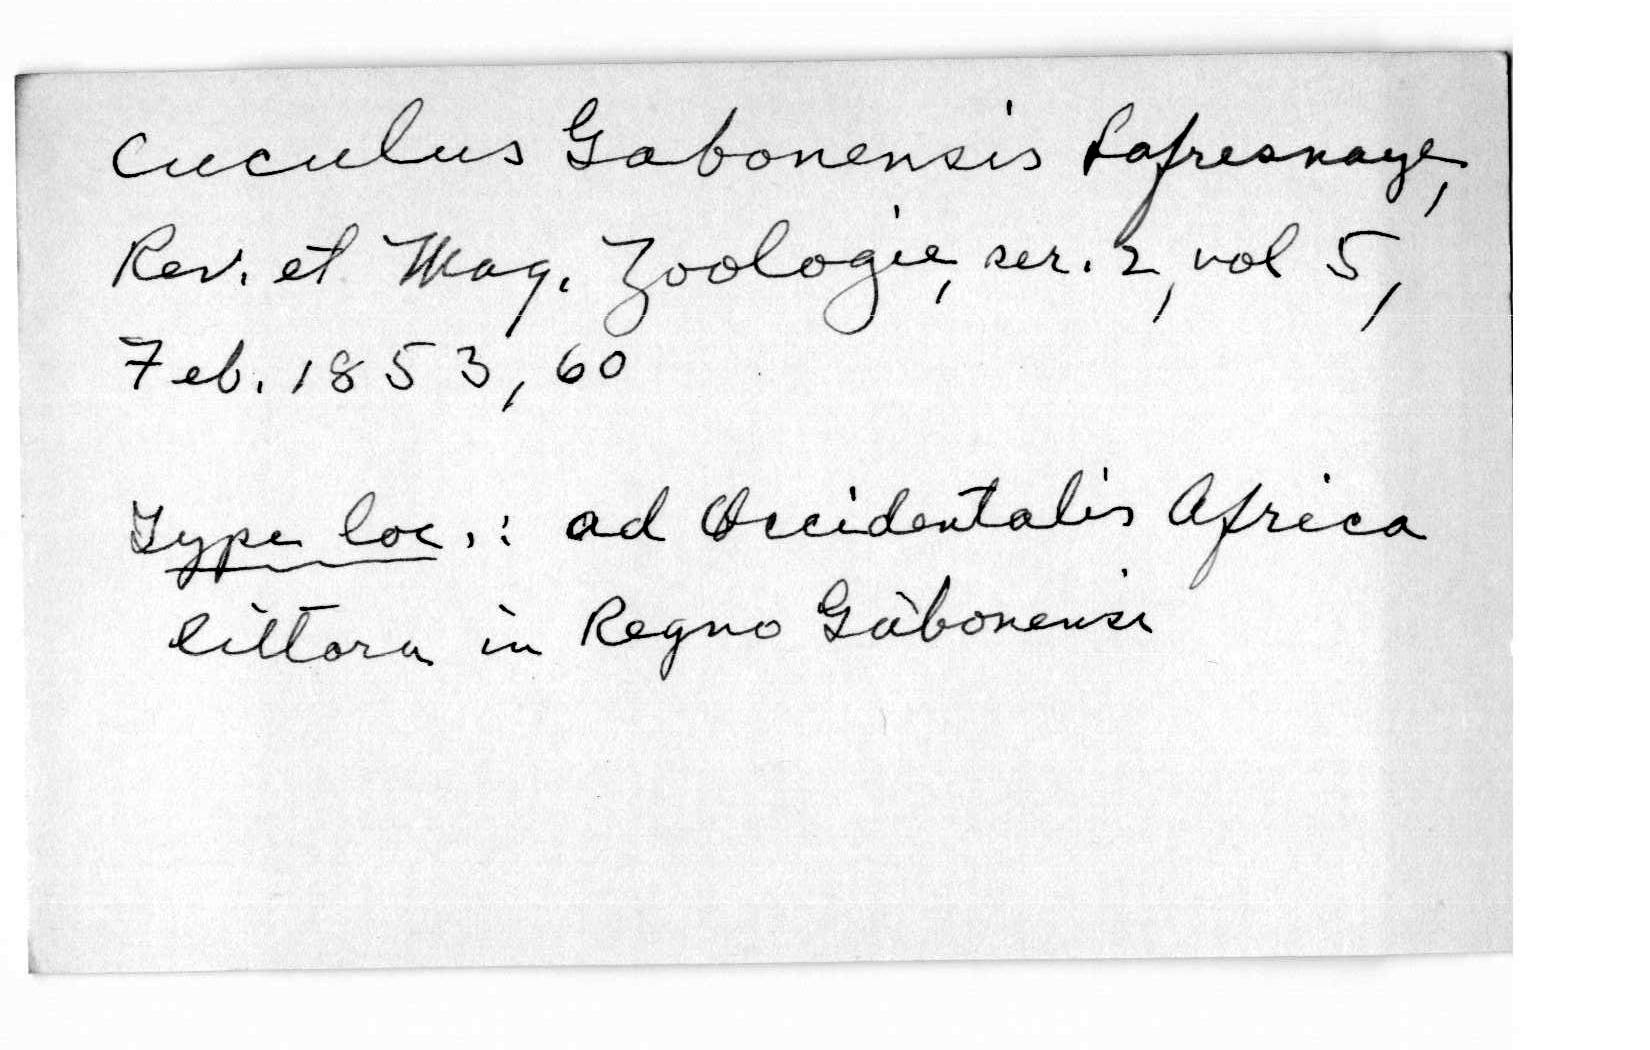 Cuculus Gabonensis Lafresnaye,
Rev. et Mag. Zoologie, ser. 2, vol 5,
Feb. 1853, 60
Type loc.: ad Occidentalis Africa
littora in Regno Gabonensi